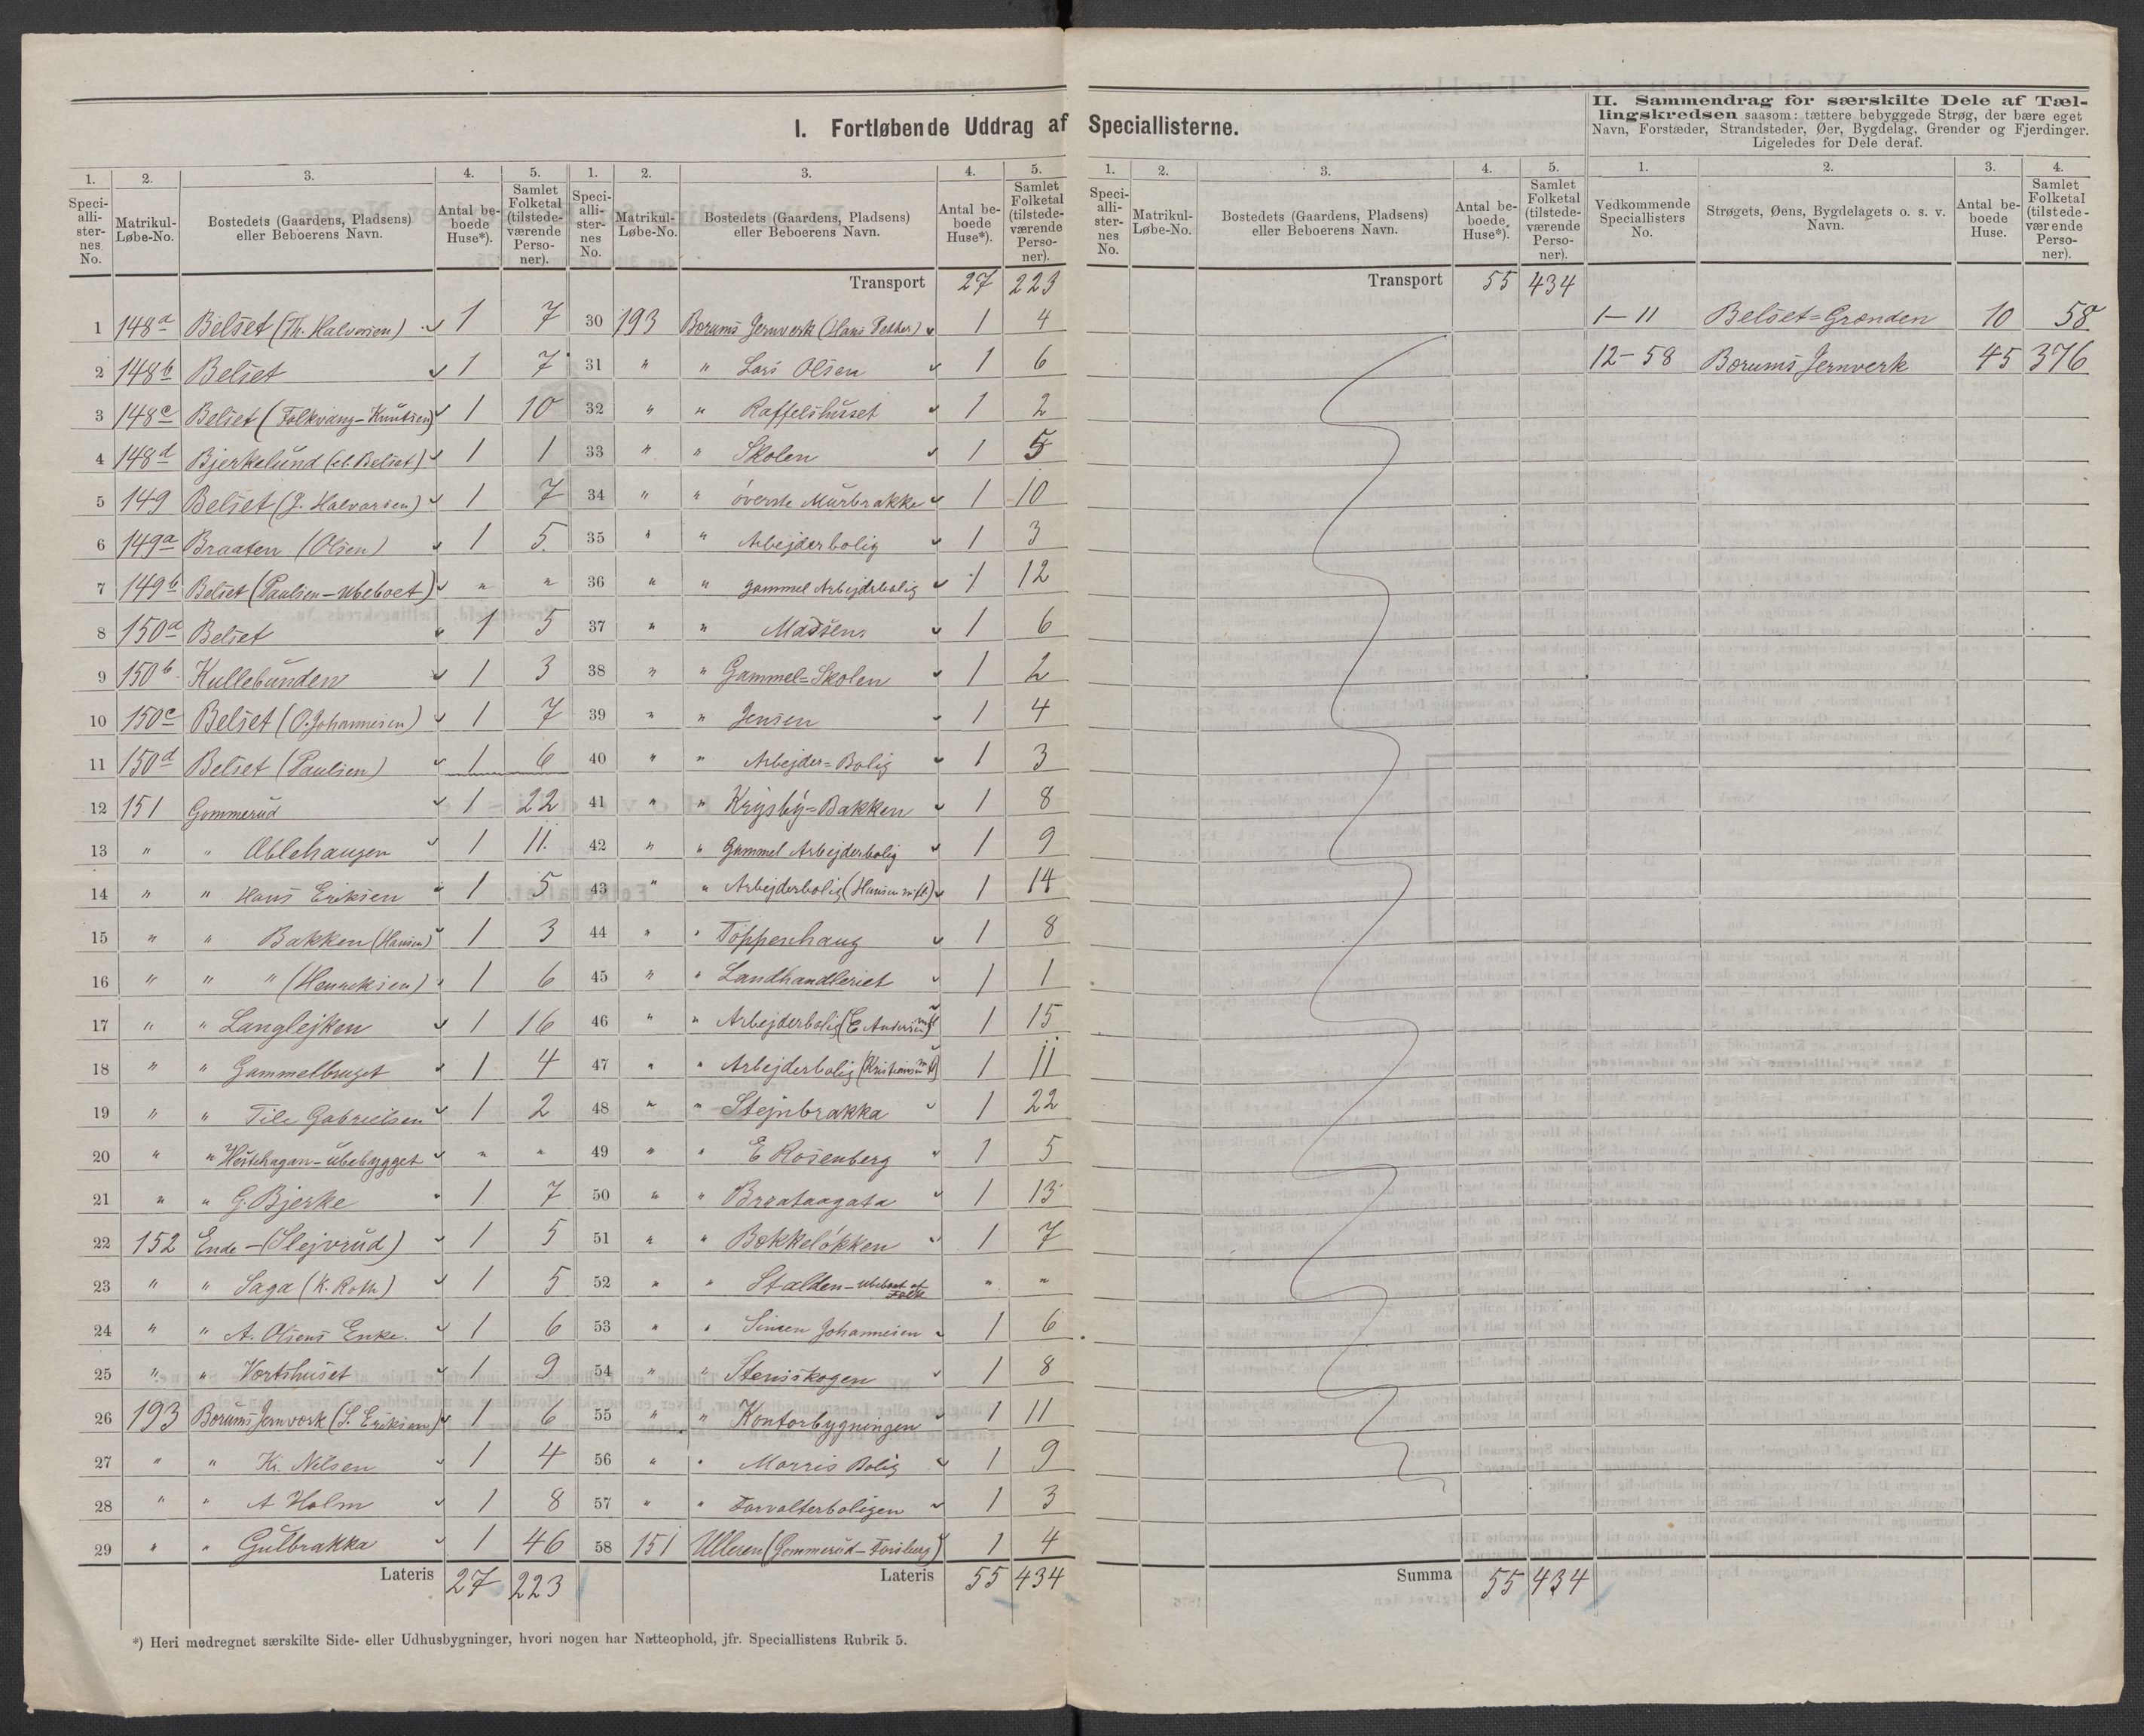 I. Fortløbende Uddrag af Speciallisterne.
II. Sammendrag for særskilte Dele af Tæl-
lingskredsen saasom: tættere bebyggede Strøg, der bære eget
Navn, Forstæder, Strandsteder, Øer, Bygdelag, Grender og Fjerdinger.
Ligeledes for Dele deraf.
1. 2. 3. 4. 5.
Speci-alli-ster-nes No. Matrikul-Løbe-No. Bostedets (Gaardens, Pladsens) eller Beboerens Navn. Antal be-boede Huse*). Samlet Folketal (tilstede-værende Perso-ner).
1 148a Belset (Th. Halvorsen) 1 7
2 148b Belset 1 7
3 148c Belset (Folkvang-Knutsen) 1 10
4 148d Bjerkelund (el. Belset) 1 1
5 149 Belset (J. Halvorsen) 1 7
6 149a Braaten (Olsen) 1 5
7 149b Belset (Paulsen-Ubeboet) " "
8 150a Belset 1 5
9 150b Kullebunden 1 3
10 150c Belset (O. Johannesen) 1 7
11 150d Belset (Paulsen) 1 6
12 151 Gommerud 1 22
13 " " Ablehaugen 1 11
14 " " Hans Eriksen 1 5
15 " " Bakken (Hansen) 1 3
16 " " " (Henriksen) 1 6
17 " " Langlejken 1 16
18 " " Gammelbruget 1 4
19 " " Gabrielsen 1 2
20 " " Hestehagan-ubebygget " "
21 " " G. Bjerke 1 7
22 152 Ende-(Slejvrud) 1 5
23 " " Saga (K. Roth) 1 5
24 " " A. Olsens Enke. 1 6
25 " " Vertshuset 1 9
26 193 Bærums Jernverk (S. Eriksen) 1 6
27 " " Kr. Nilsen 1 4
28 " " A Holm 1 8
29 " " Gulbrakka 1 46
Lateris 27 223
1. 2. 3. 4. 5.
Speci-alli-ster-nes No. Matrikul-Løbe-No. Bostedets (Gaardens, Pladsens) eller Beboerens Navn. Antal be-boede Huse*). Samlet Folketal (tilstede-værende Perso-ner).
Transport 27 223
30 193 Bærums Jernverk (Hans Petter) 1 4
31 " " Lars Olsen 1 6
32 " " Raffelshuset 1 2
33 " " Skolen 1 5
34 " " øverste Murbrakke 1 10
35 " " Arbejderbolig 1 3
36 " " gammel Arbejderbolig 1 12
37 " " Madsen 1 6
38 " " Gammel=Skolen 1 2
39 " " Jensen 1 4
40 " " Arbejder=Bolig 1 3
41 " " Krysby=Bakken 1 8
42 " " Gammel Arbejderbolig 1 9
43 " " Arbejderbolig (Hansen m fl.) 1 14
44 " " Toppenhaug 1 8
45 " " Landhandleriet 1 1
46 " " Arbejderbolig (E Andersen m fl) 1 15
47 " " Arbejderbolig (Kristiansen m fl) 1 11
48 " " Stejnbrakka 1 22
49 " " E Rosenberg 1 5
50 " " Braataagata 1 13
51 " " Bekkeløkken 1 7
52 " " Stalden-Ubeboet af Folk " "
53 " " Simen Johannesen 1 6
54 " " Stensskogen 1 8
55 " " Kontorbygningen 1 11
56 " " Morris Bolig 1 9
57 " " Forvalterboligen 1 3
58 151 Ulleren (Gommerud-Forsberg) 1 4
Lateris 55 434
*) Heri medregnet særskilte Side- eller Udhusbygninger, hvori nogen har Natteophold, jfr. Speciallistens Rubrik 5.
1. 2. 3. 4. 5.
Speci-alli-ster-nes No. Matrikul-Løbe-No. Bostedets (Gaardens, Pladsens) eller Beboerens Navn. Antal be-boede Huse*). Samlet Folketal (tilstede-værende Perso-ner).
Transport 55 434
Summa 55 434
1. 2. 3. 4.
Vedkommende Speciallisters No. Strøgets, Øens, Bygdelagets o. s. v. Navn. Antal be-boede Huse. Samlet Folketal (tilstede-værende Perso-ner).
1-11 Belset=Grænden 10 58
12-58 Bærums Jernverk 45 376